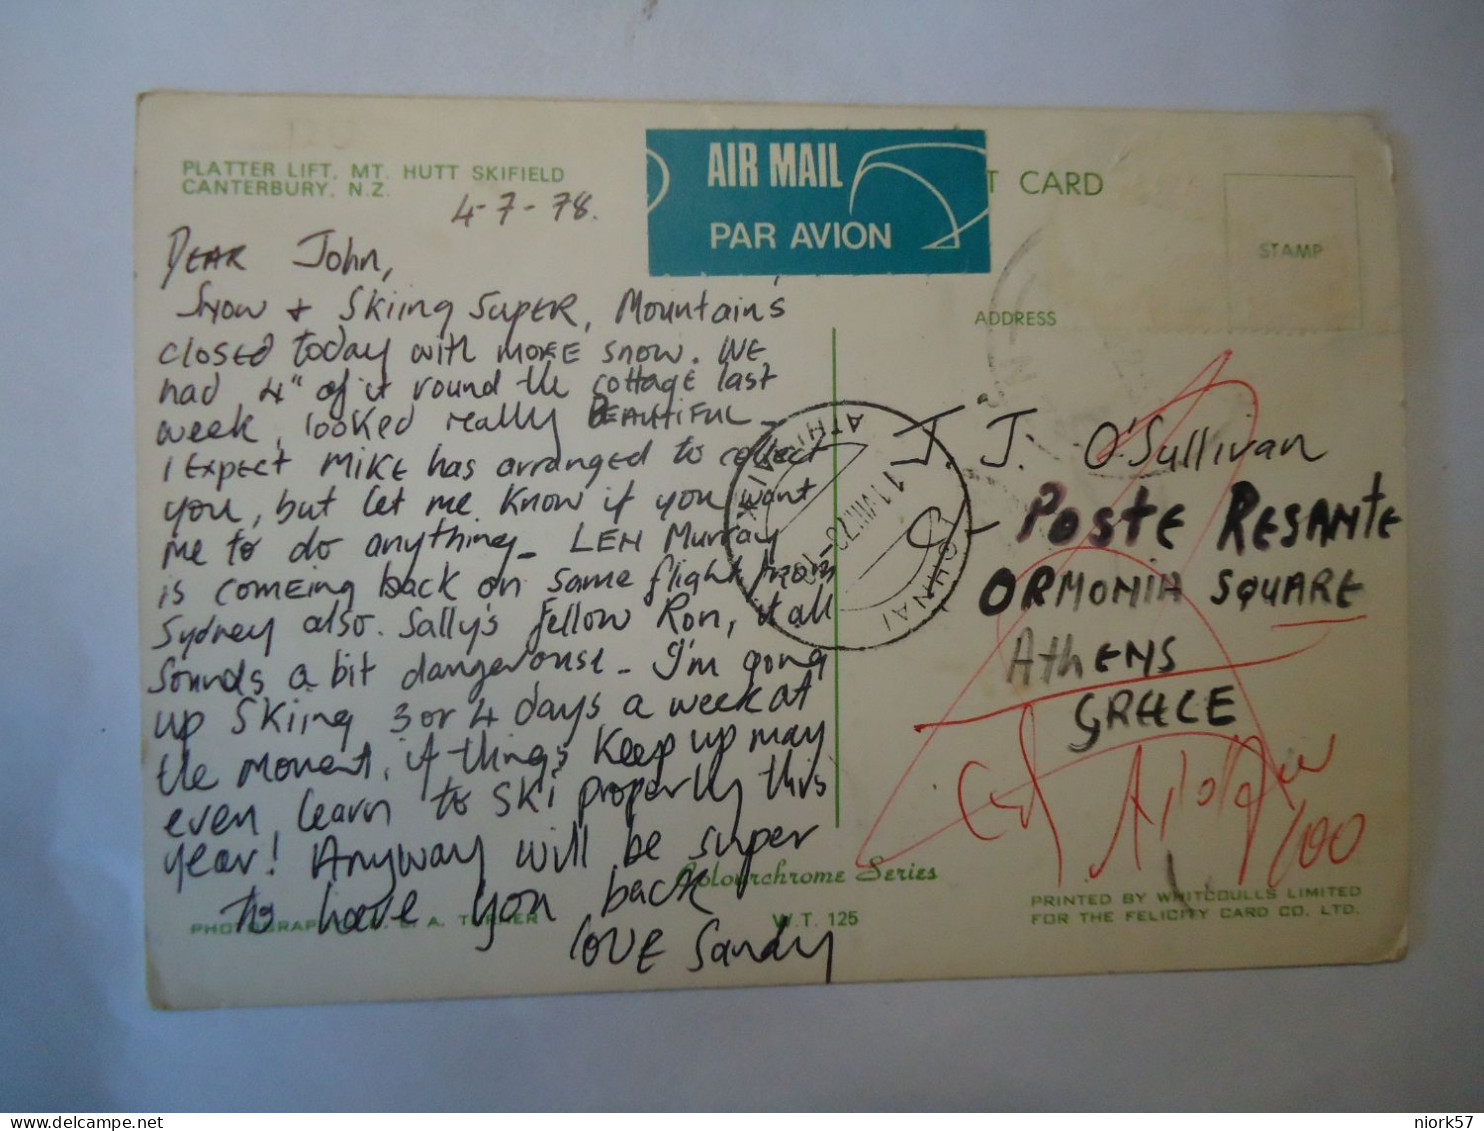 PLATTER LIFT, MT. HUTT SKIFIELD
CANTERBURY, N.Z.
4-7-78.
DEAR John,
Snow + Skiing SUPER, Mountain's
closed today with MORE snow. WE
had 4" of it round the cottage last
week, looked really BEAUTIFUL -
I EXPECT MIKE has arranged to collect
you, but let me know if you want
me to do anything - LEN Murray
is comeing back on same flight from
Sydney also. Sally's fellow Ron, it all
sounds a bit dangerouse - I'm going
up SKiing 3 or 4 days a week at
the moment, if things keep up may
even, learn to ski properly this
year! Anyway will be super
to have you back
LOVE Sandy
AIR MAIL
PAR AVION
T CARD
STAMP
ADDRESS
J. J. O'Sullivan
POSTE RESANTE
ORMONIA SQUARE
AthENS
GREECE
100
ATHINAI
Colourchrome Series
W.T. 125
A. TURNER
PRINTED BY WHITCOULLS LIMITED
FOR THE FELICITY CARD CO. LTD.
niork57